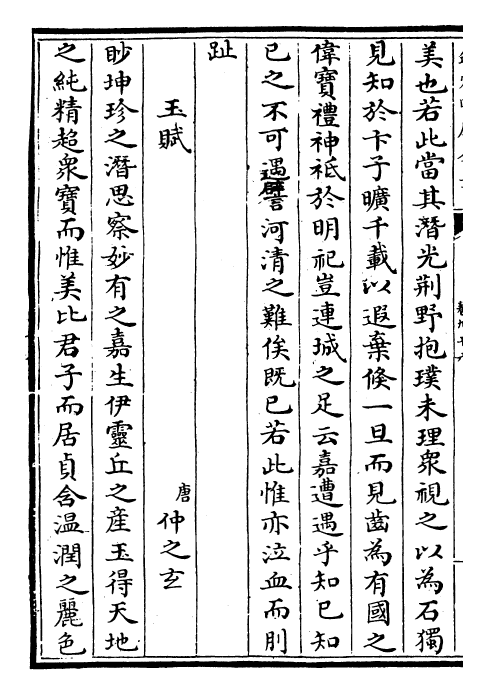 美也若此當其潛光荆野抱璞未理衆視之以為石獨
見知於卞子曠千載以遐棄倏一旦而見齒為有國之
偉寶禮神祗於明祀豈連城之足云嘉遭遇乎知已知
已之不可遇譬河清之難俟既已若此惟亦泣血而刖
趾
玉賦
唐 仲之玄
眇坤珍之潛思察妙有之嘉生伊靈丘之産玉得天地
之純精超衆寶而惟美比君子而居貞含温潤之麗色